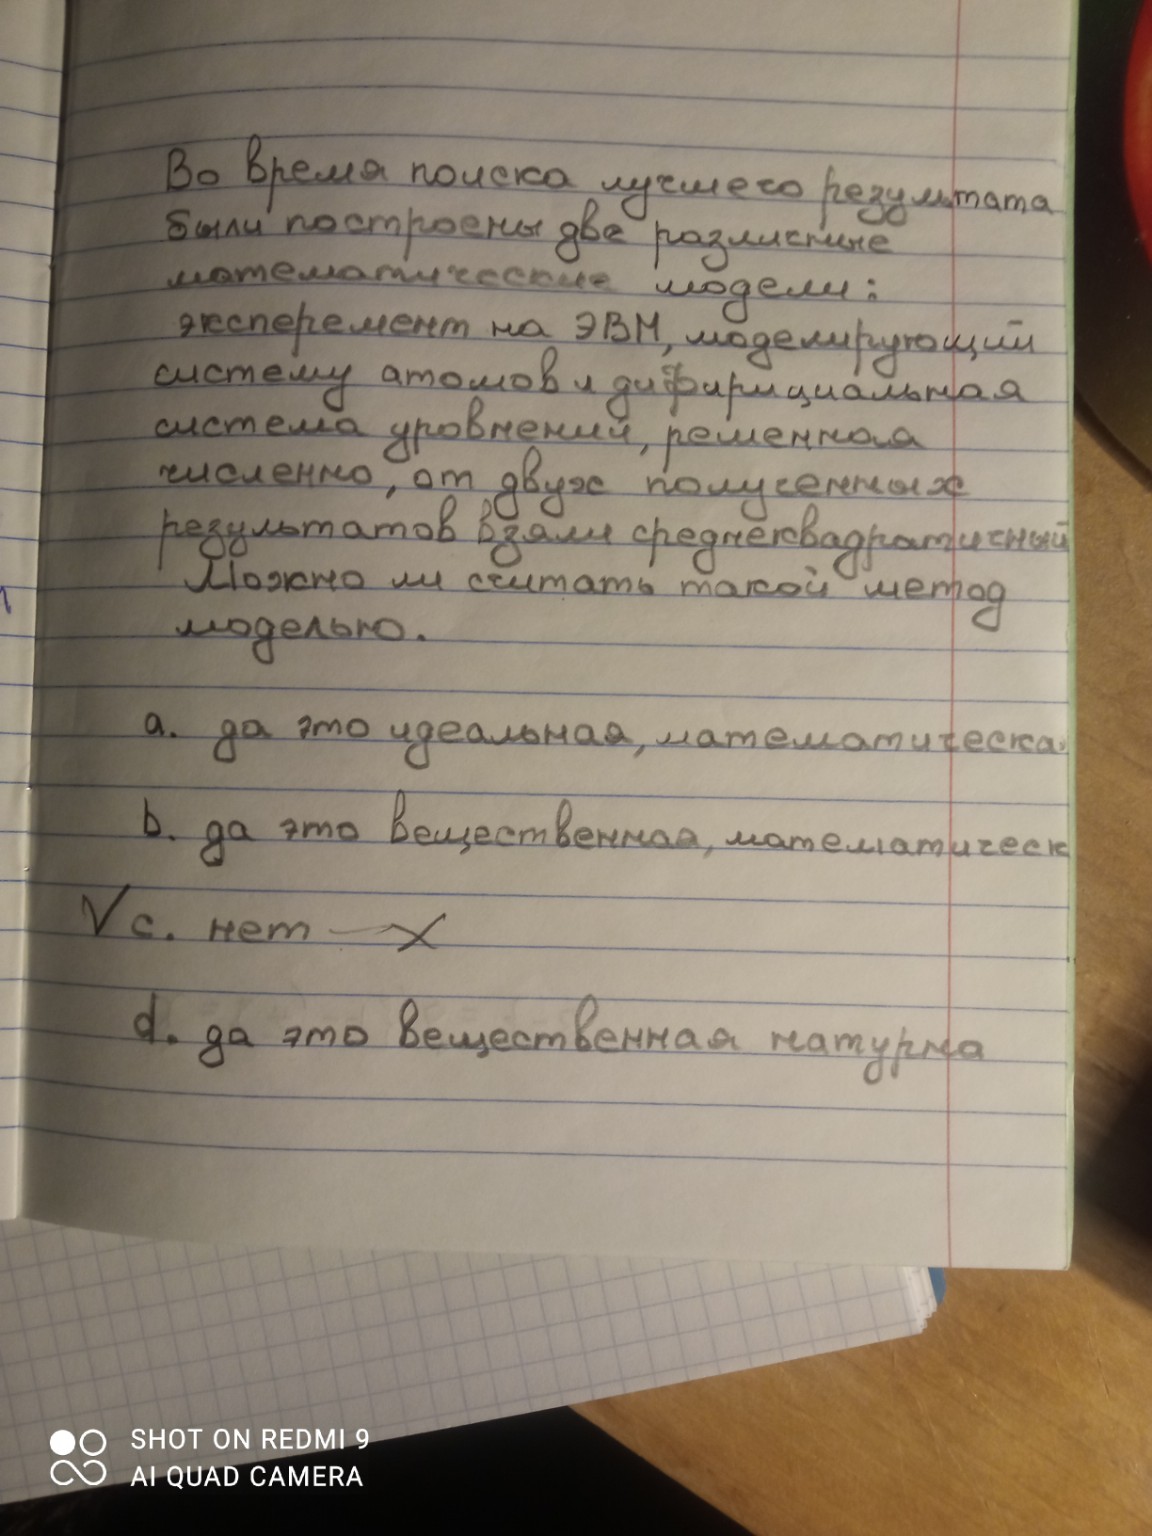 Во время поиска лучшего результата
были построены две различные
математические модели:
эксперемент на ЭВМ, моделирующий
систему атомов и дифирициальная
система уровнений, решенная
численно, от двух полученных
результатов взяли среднеквадратичный
Можно ли считать такой метод
моделью.
a. да это идеальная, математическая
b. да это вещественная, математическ
V c. нет — X
d. да это вещественная натурна
SHOT ON REDMI 9
AI QUAD CAMERA